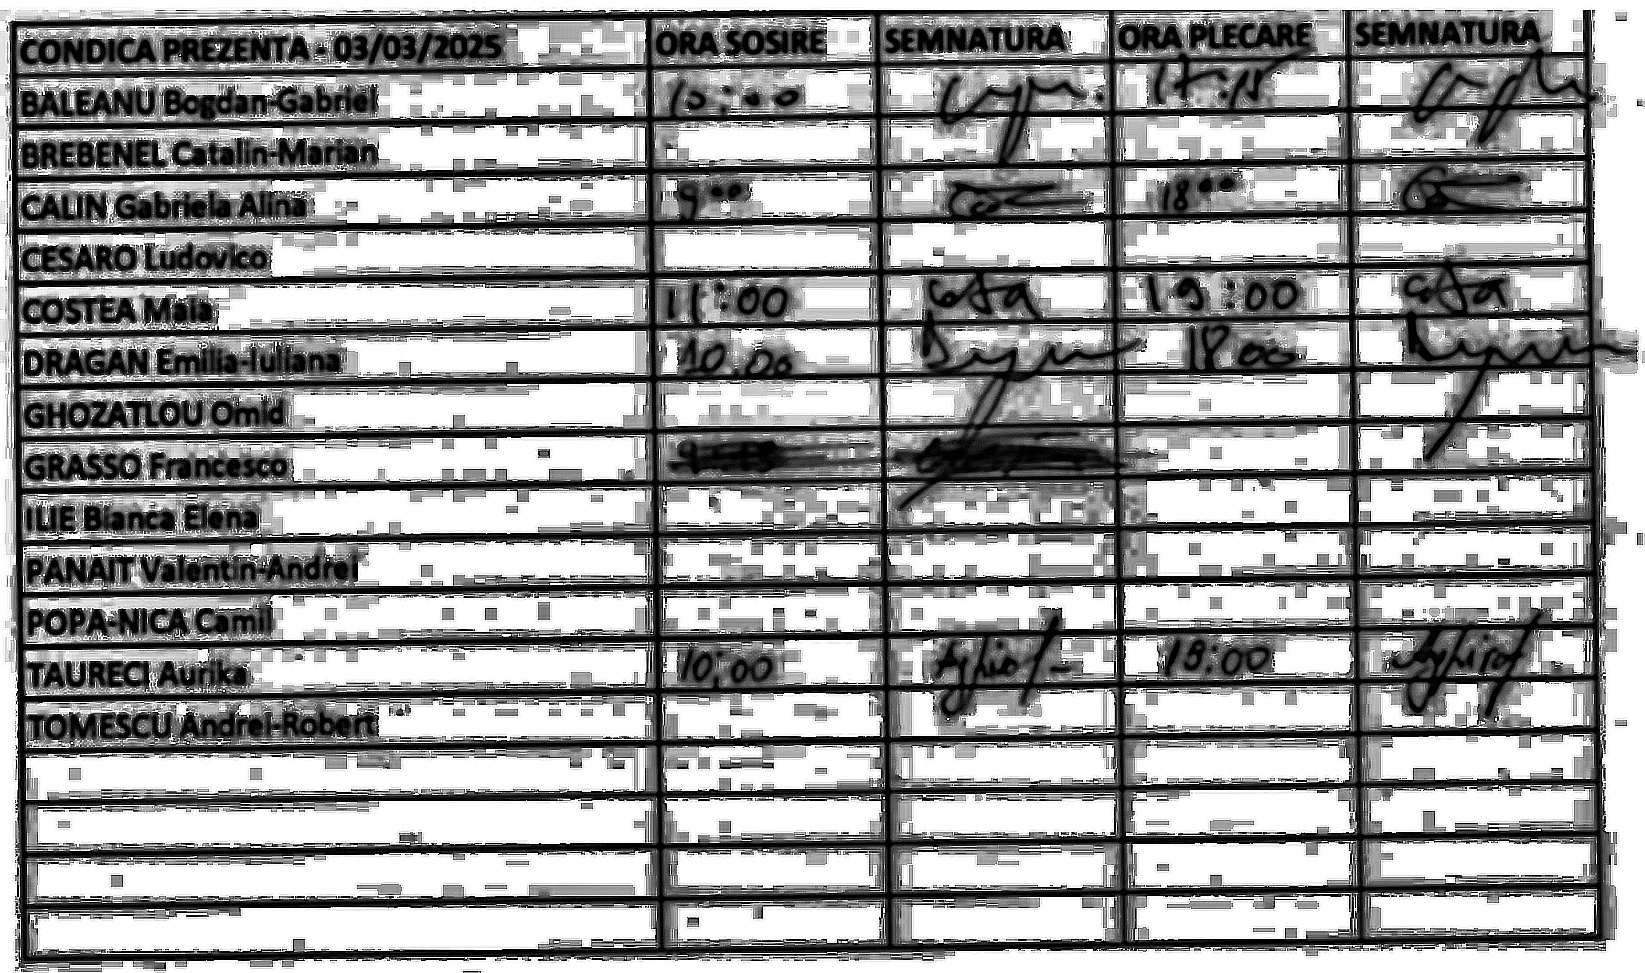 CONDICA PREZENTA - 03/03/2025 ORA SOSIRE SEMNATURA ORA PLECARE SEMNATURA
BALEANU Bogdan-Gabriel 10:00 17:15
BREBENEL Catalin-Marian
CALIN Gabriela Alina 9⁰⁰ 18⁰⁰
CESARO Ludovico
COSTEA Maia 11:00 Costea 19:00 Costea
DRAGAN Emilia-Iuliana 10.00 18 00
GHOZATLOU Omid
GRASSO Francesco
ILIE Bianca Elena
PANAIT Valentin-Andrei
POPA-NICA Camil
TAURECI Aurika 10:00 18:00
TOMESCU Andrei-Robert